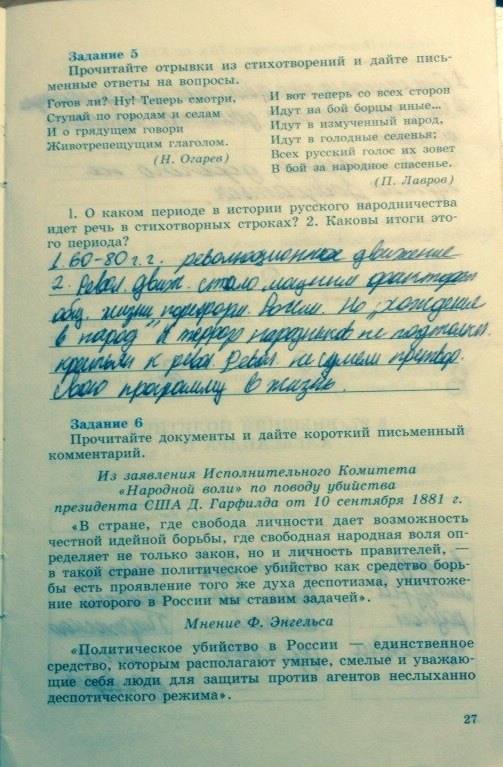 Задание 5
Прочитайте отрывки из стихотворений и дайте пись-
менные ответы на вопросы.
Готов ли? Ну! Теперь смотри,
Ступай по городам и селам
И о грядущем говори
Животрепещущим глаголом.
(Н. Огарев)
И вот теперь со всех сторон
Идут на бой борцы иные...
Идут в измученный народ,
Идут в голодные селенья;
Всех русский голос их зовет
В бой за народное спасенье.
(П. Лавров)
1. О каком периоде в истории русского народничества
идет речь в стихотворных строках? 2. Каковы итоги это-
го периода?
1. 60-80 г.г. революционное движение
2. Револ. движ. стало мощным фактором
общ. жизни пореформ. России. Но "хождение
в народ" и террор народников не подтолкн.
крестьян к рев. Револ. не сумели претвор.
свою программу в жизнь.
Задание 6
Прочитайте документы и дайте короткий письменный
комментарий.
Из заявления Исполнительного Комитета
«Народной воли» по поводу убийства
президента США Д. Гарфилда от 10 сентября 1881 г.
«В стране, где свобода личности дает возможность
честной идейной борьбы, где свободная народная воля оп-
ределяет не только закон, но и личность правителей, —
в такой стране политическое убийство как средство борь-
бы есть проявление того же духа деспотизма, уничтоже-
ние которого в России мы ставим задачей».
Мнение Ф. Энгельса
«Политическое убийство в России — единственное
средство, которым располагают умные, смелые и уважаю-
щие себя люди для защиты против агентов неслыханно
деспотического режима».
27